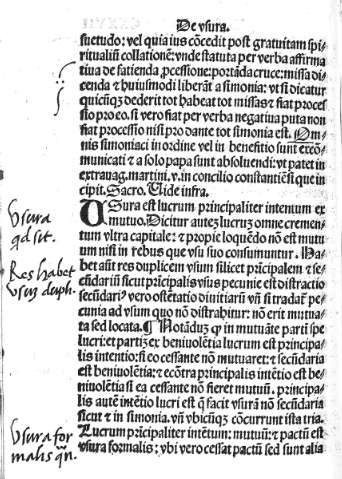 De vsura.
suetudo: vel quia ius cōcedit post gratuitam spi⸗
ritualiū collationē: vnde statuta per verba affirma
tiua de fatienda ꝓcessione: portāda cruce: missa di⸗
cenda & huiusmodi liberāt a simonia: vt si dicatur
quicūqꝫ dederit tot habeat tot missas & fiat proces
sio pro eo. si vero fiat per verba negatiua puta non
fiat processio nisi pro dante tot simonia est. Om⸗
nis simoniaci in ordine vel in benefitio sunt excō⸗
municati & a solo papa sunt absoluendi: vt patet in
extrauag. martini. v. in concilio constantiēsi que in
cipit. Sacro. Vide infra.
VSura est lucrum principaliter intentum ex
mutuo. Dicitur autez lucruꝫ omne cremen⸗
tum vltra capitale: & propie loquēdo nō est mutu
um nisi in rebus que vsu suo consumuntur. Ha⸗
bet aūt res duplicem vsum silicet prīcipalem & se⸗
cūdariū sicut prīcipalis vsus pecunie est distractio
secūdariꝰ vero ostētatio diuitiarū vn̄ si tradatᷣ pe⸗
cunia ad vsum quo nō distrahiturͬ: nō erit mutua⸗
ta sed locata. ¶ Notāduꝫ ꝙ in mutuāte parti spe
lucri: et partiꝫ ex beniuolētia lucrum est principa⸗
lis intentio: si eo cessante nō mutuaret: & secūdaria
est beniuolētia: & ecōtra principalis intētio est be⸗
niuolētia si ea cessante nō fieret mutuū. principa⸗
lis autē intētio lucri est q̄ facit vsurā nō secūdaria
sicut & in simonia. vn̄ vbicūqꝫ cōcurrunt ista tria.
Lucrum prīcipaliter intētum: mutuū: & pactū est
vsura formalis: vbi vero cessat pactū sed sunt alia
Vsura
qd sit.
Res habet
vsuꝫ dupli.
Vsura for
malis qn̄.